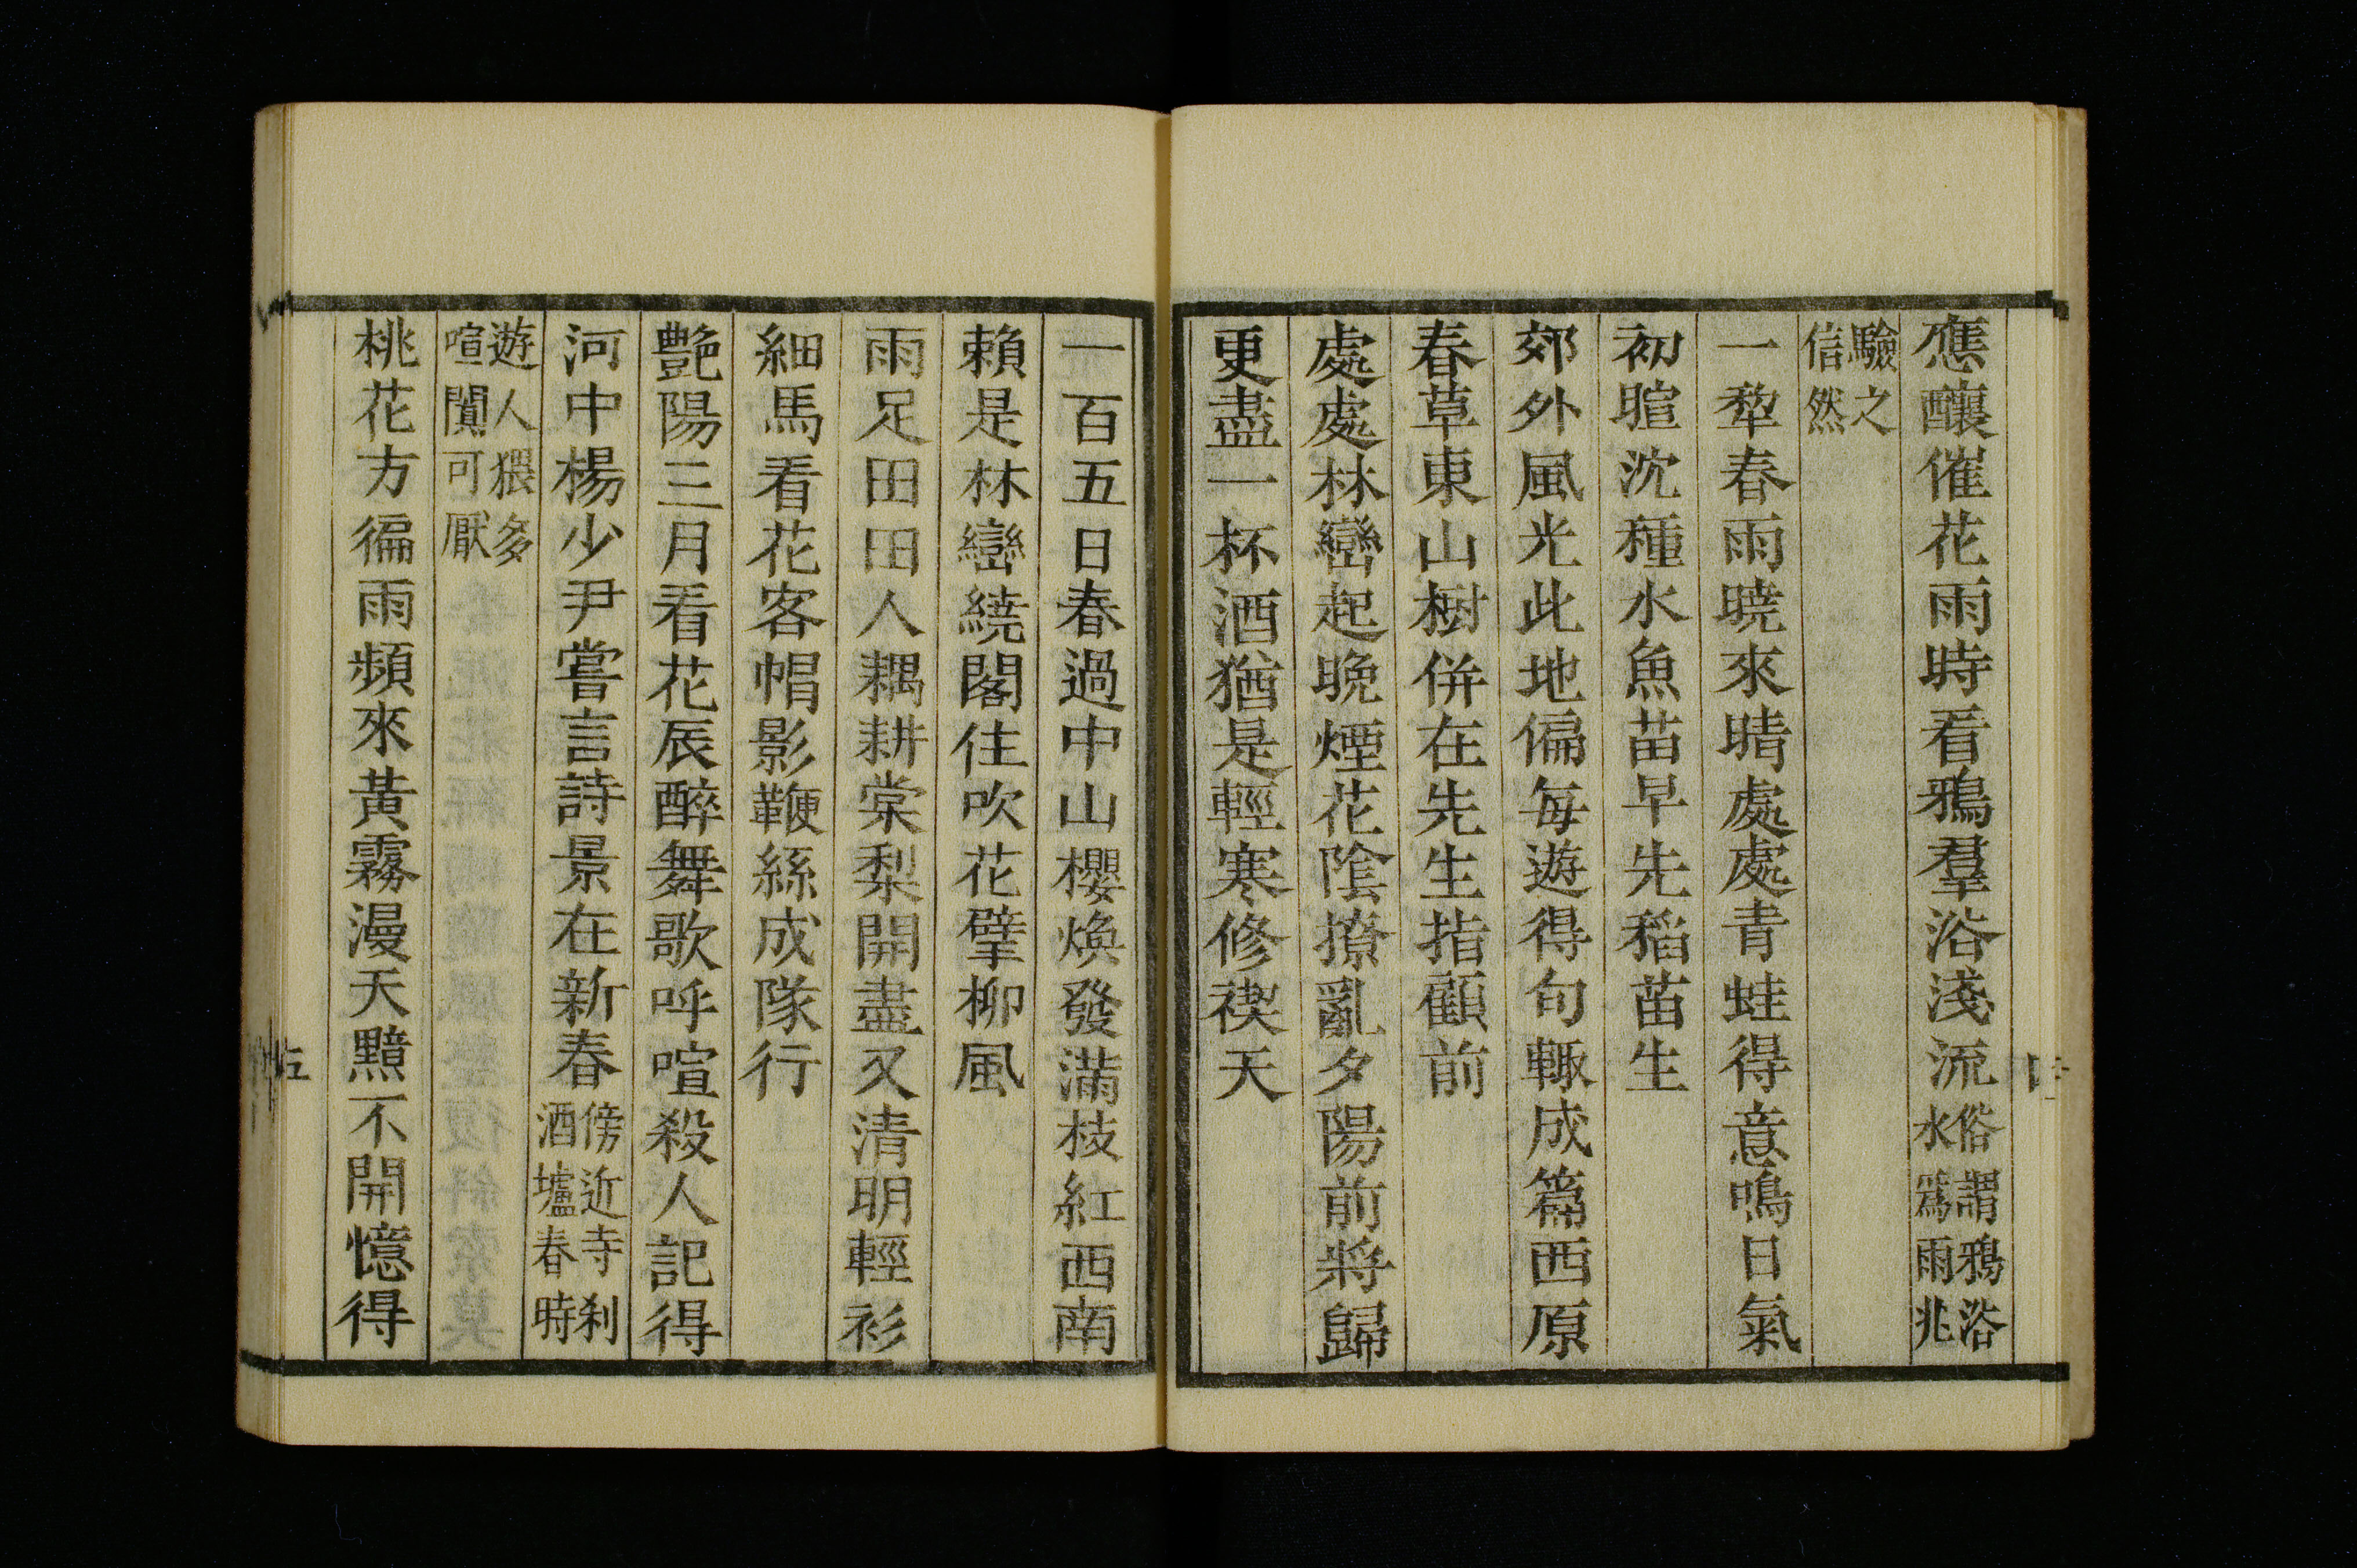 應釀催花雨時看鴉羣浴淺流俗謂鴉浴水爲雨兆
驗之信然
一犂春雨曉來晴處處青蛙得意鳴日氣
初暄沈種水魚苗早先稻苗生
郊外風光此地偏每遊得句輙成篇西原
春草東山樹併在先生指顧前
處處林巒起晚煙花陰撩亂夕陽前將歸
更盡一杯酒猶是輕寒修禊天
一百五日春過中山櫻煥發滿枝紅西南
賴是林巒繞閣住吹花擘柳風
雨足田田人耦耕棠梨開盡又清明輕衫
細馬看花客帽影鞭絲成隊行
艷陽三月看花辰醉舞歌呼喧殺人記得
河中楊少尹嘗言詩景在新春傍近寺刹酒壚春時
遊人猥多喧闐可厭
桃花方徧雨頻來黃霧漫天黯不開憶得
五